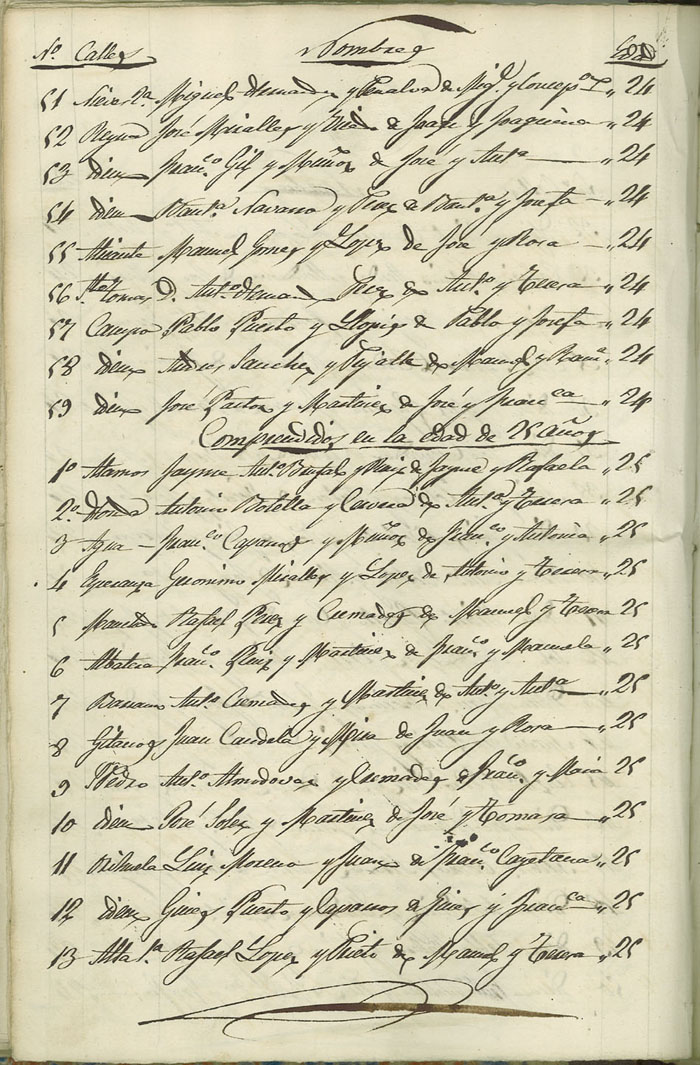 Nº Calles Nombres Edad
51 Nieves Miguel Hernandez y Penalva de Migl. y Concepon „ 24
52 Reyna José Miralles y de Juan y Joaquina „ 24
53 idem Franco Gil y Muñoz de José y Anta „ 24
54 idem Bauta Navarro y Perez de Bauta y Josefa „ 24
55 Alicante Manuel Gomez y Lopez de José y Rosa „ 24
56 Sto Tomas D. Anto Hernandez Perez de Anto y Teresa „ 24
57 Campo Pablo Puerto y Llopis de Pablo y Josefa „ 24
58 idem Andres Sanchez y de Manuel y Ramona „ 24
59 idem José Pastor y Martinez de José y Franca „ 24
Comprendidos en la edad de 25 años
1º Alamos Jayme Anto y Ruiz de Jayme y Rafaela „ 25
2º Honda Antonio Botella y de Anto y Teresa „ 25
3 Agua Franco Caparros y Muñoz de Franco y Antonia „ 25
4 Esperanza Geronimo Miralles y Lopez de Antonio y Teresa „ 25
5 Rafael Perez y Cremades de Manuel y Teresa 25
6 Albatera Franco Ruiz y Martinez de Franco y Manuela „ 25
7 Anto Cremades y Martinez de Anto y Anta „ 25
8 Gitanos Juan Candela y Mira de Juan y Rosa „ 25
9 Sn Pedro Anto Almodovar y Cremades de Franco y Maria 25
10 idem José Soler y Martinez de José y Tomasa „ 25
11 Orihuela Luis Moreno y Juarez de Franco Cayetana „ 25
12 idem Gines Puerto y Caparros de Gines y Franca „ 25
13 Alta Rafael Lopez y Prieto de Manuel y Teresa „ 25